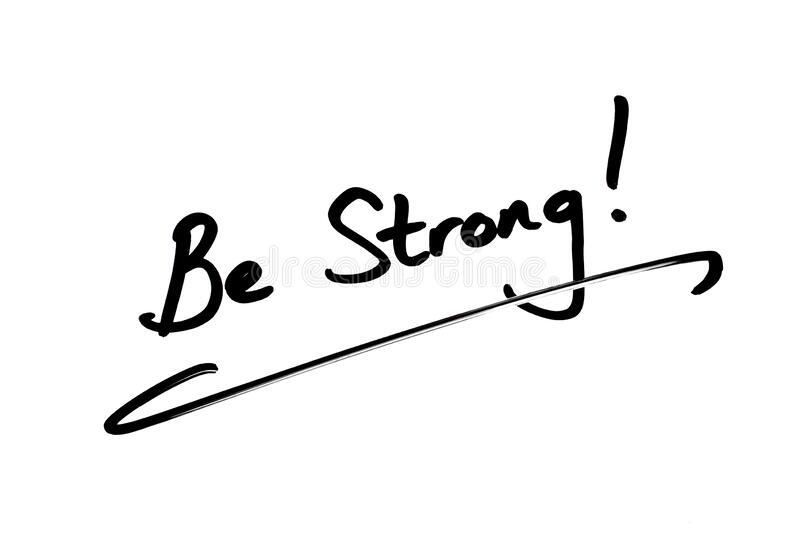 Be Strong!
dreamstime